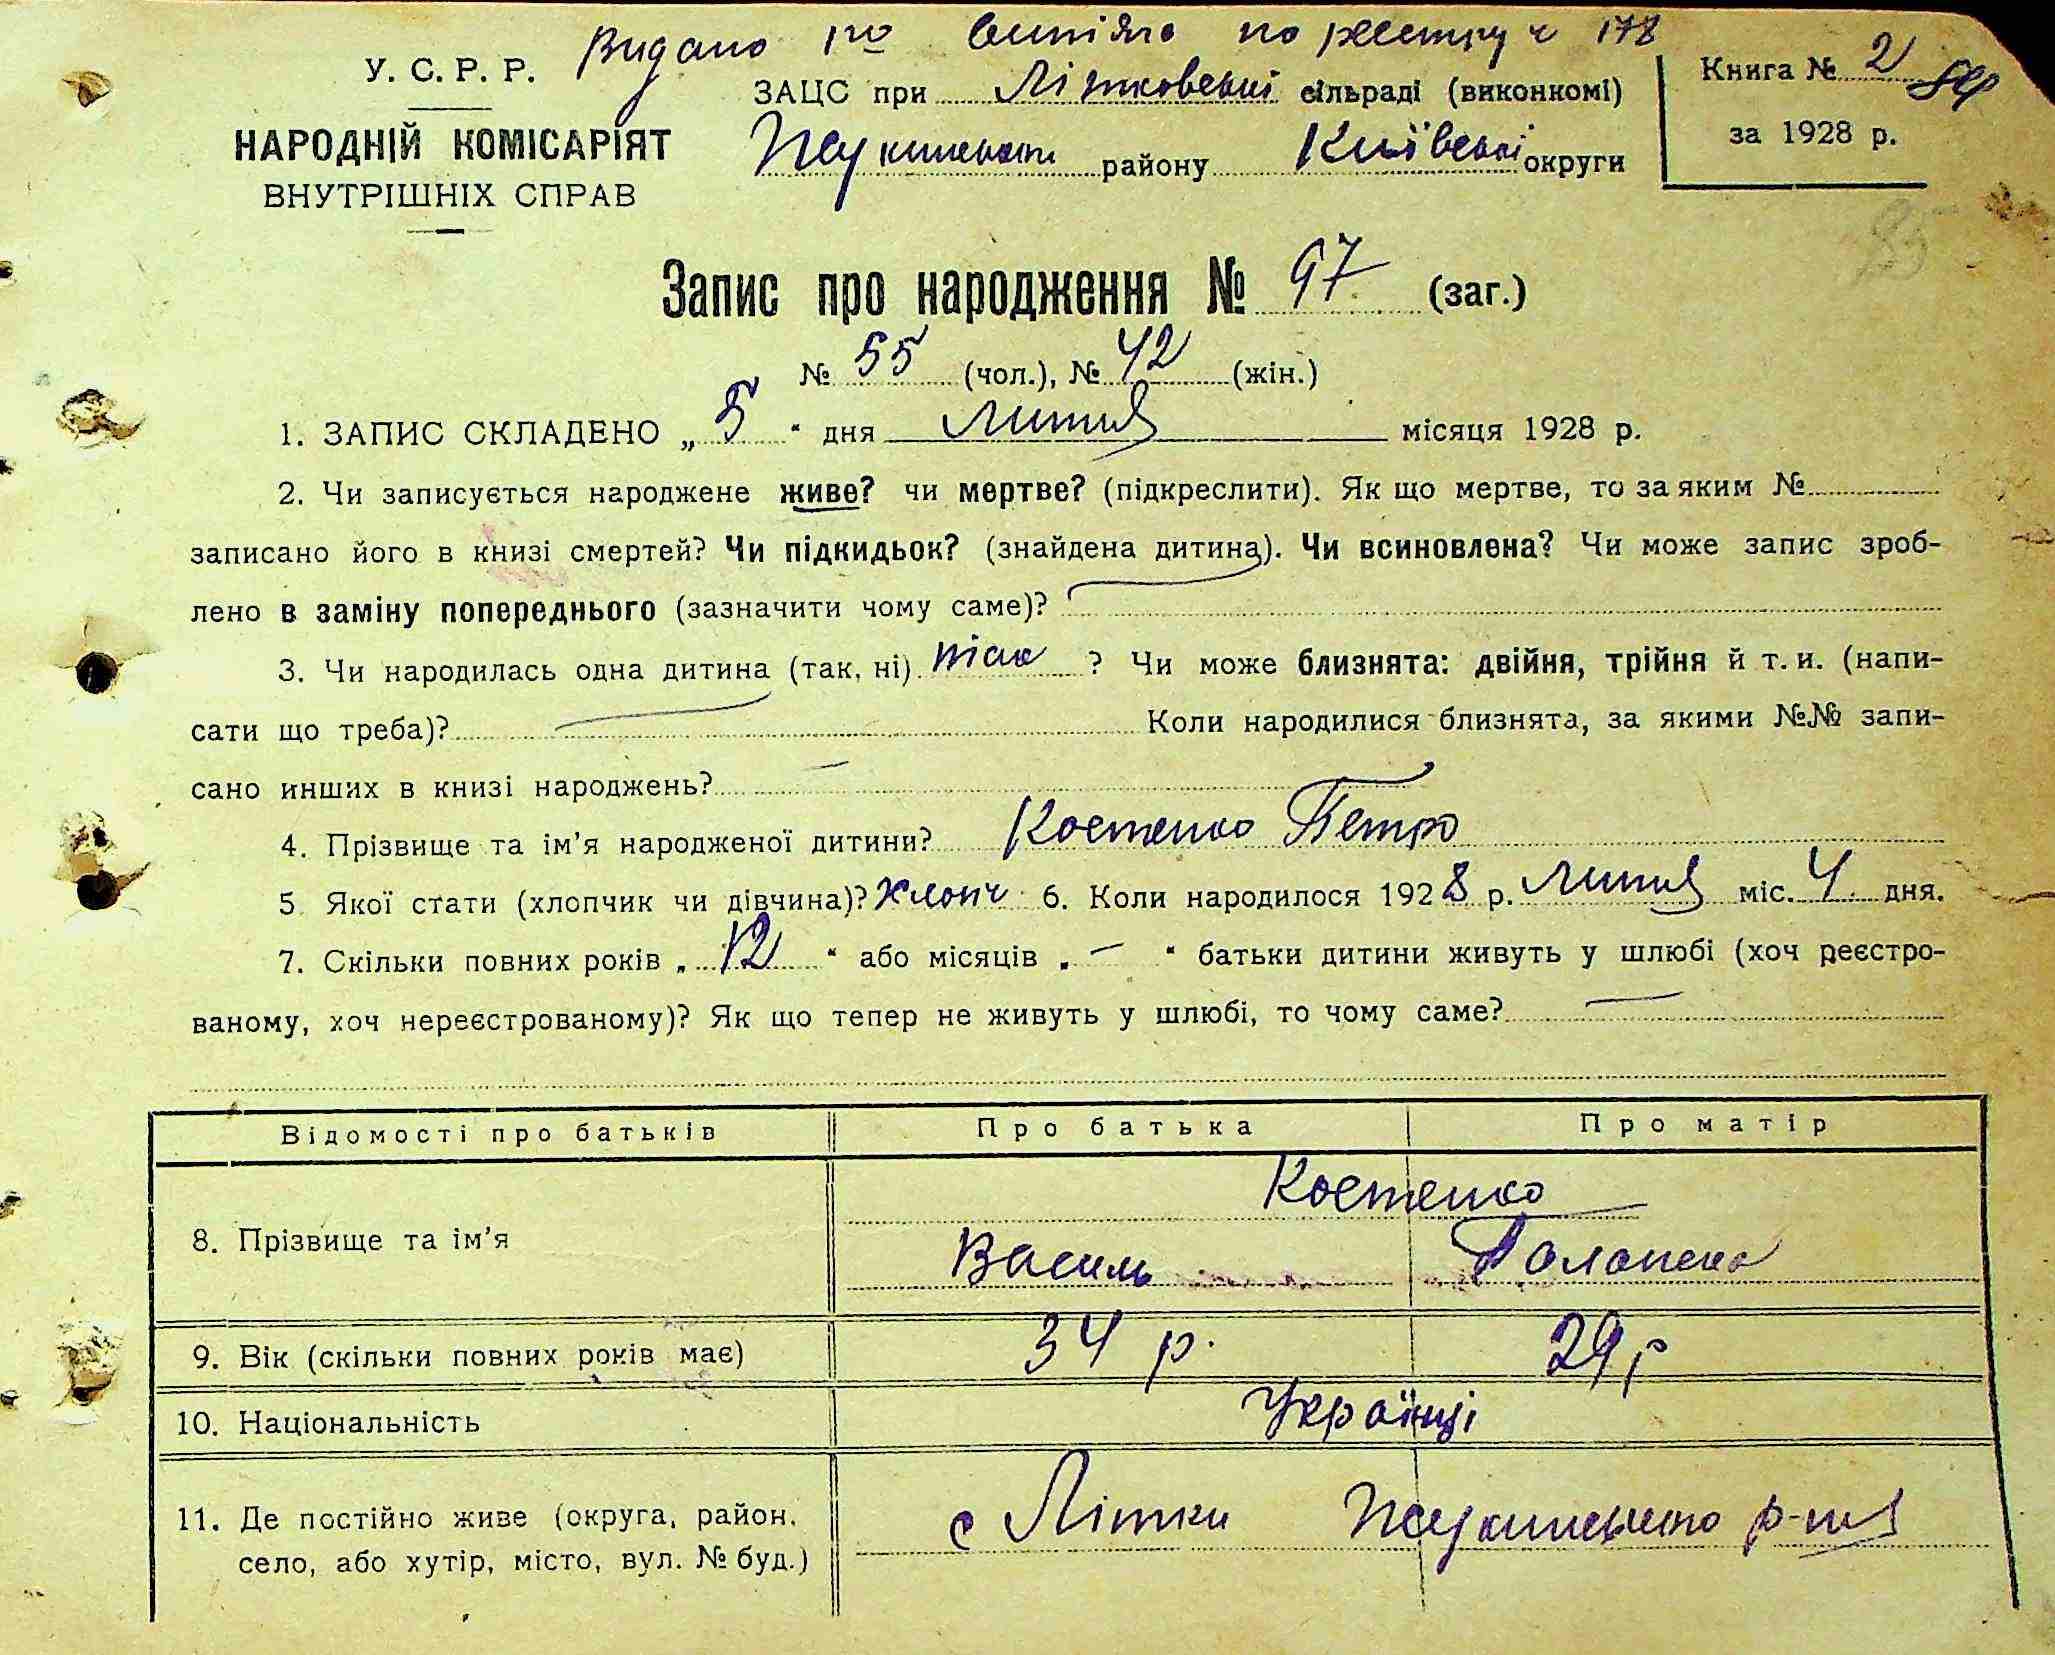 Видано 1го витяга по реєстру ч 178
У. С. Р. Р.
НАРОДНІЙ КОМІСАРІЯТ
ВНУТРІШНІХ СПРАВ
ЗАЦС при Літковській сільраді (виконкомі)
Жукинського району Київської округи
Книга № 2
за 1928 р.
Запис про народження № 97 (заг.)
№ 55 (чол.), № 42 (жін.)
1. ЗАПИС СКЛАДЕНО „ 5 “ дня Липня місяця 1928 р.
2. Чи записується народжене живе? чи мертве? (підкреслити). Як що мертве, то за яким №
записано його в книзі смертей? Чи підкидьок? (знайдена дитина). Чи всиновлена? Чи може запис зроб-
лено в заміну попереднього (зазначити чому саме)?
3. Чи народилась одна дитина (так, ні) так ? Чи може близнята: двійня, трійня й т. и. (напи-
сати що треба)? Коли народилися близнята, за якими №№ запи-
сано инших в книзі народжень? —
4. Прізвище та ім'я народженої дитини? Костенко Петро
5 Якої стати (хлопчик чи дівчина)? Хлопч 6. Коли народилося 1928 р. Липня міс. 4 дня.
7. Скільки повних років „ 12 “ або місяців „ — “ батьки дитини живуть у шлюбі (хоч реєстро-
ваному, хоч нереєстрованому)? Як що тепер не живуть у шлюбі, то чому саме? —
Відомості про батьків Про батька Про матір
Костенко
8. Прізвище та ім'я Василь Палажка
9. Вік (скільки повних років має) 34 р. 29 р
10. Національність Українці
11. Де постійно живе (округа, район, с Літки Жукинського р-ня
село, або хутір, місто, вул. № буд.)